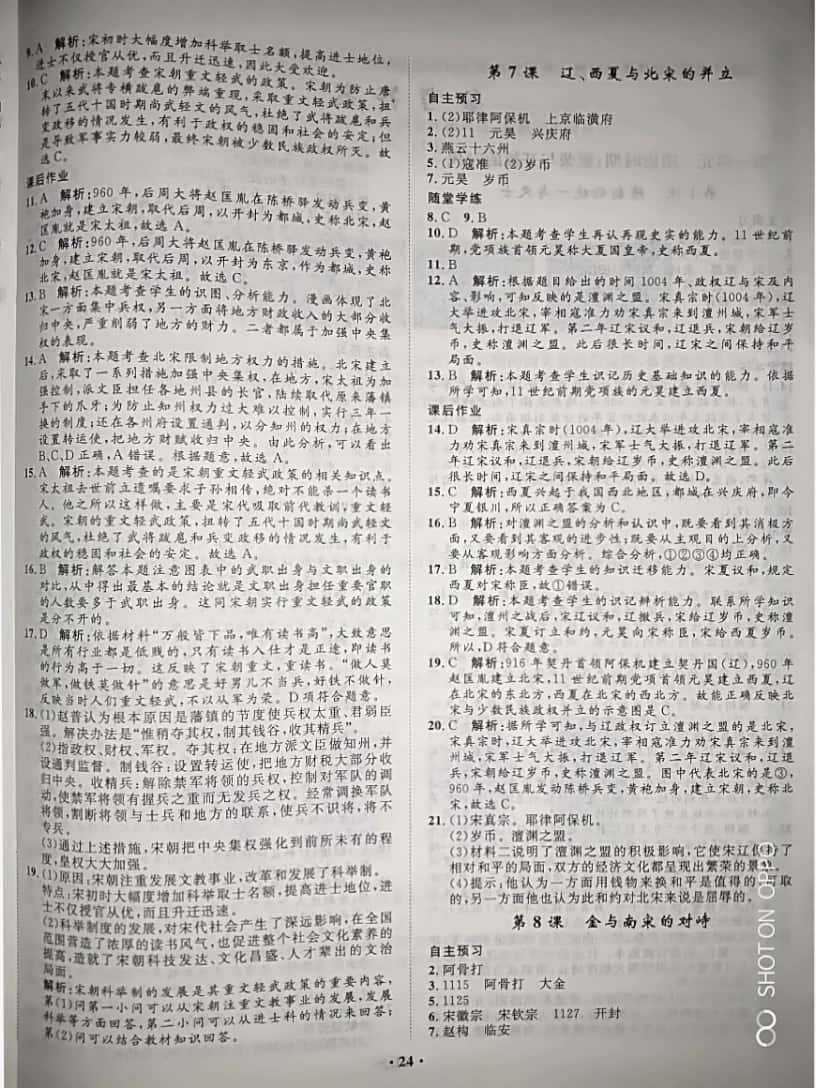 9. A 解析:宋初时大幅度增加科举取士名额,提高进士地位,
进士不仅授官从优,而且升迁迅速,因此大受欢迎。
10. C 解析:本题考查宋朝重文轻武的政策。宋朝为防止唐
末以来武将专横跋扈的弊端重现,采取重文轻武政策,扭
转了五代十国时期尚武轻文的风气,杜绝了武将跋扈和兵
变政移的情况发生,有利于政权的稳固和社会的安定;但
是导致军事实力较弱,最终宋朝被少数民族政权所灭。故
选C。
课后作业
11. A 解析:960年,后周大将赵匡胤在陈桥驿发动兵变,黄
袍加身,建立宋朝,取代后周,以开封为都城,史称北宋,赵
匡胤就是宋太祖,故选A。
12. C 解析:960年,后周大将赵匡胤在陈桥驿发动兵变,黄袍
加身,建立宋朝,取代后周,以开封为东京,作为都城,史称
北宋,赵匡胤就是宋太祖。故选C。
13. B 解析:本题考查学生的识图、分析能力。漫画体现了北
宋一方面集中兵权,另一方面将地方财政收入的大部分收
归中央,严重削弱了地方的财力。二者都属于加强中央集
权的表现。
14. A 解析:本题考查北宋限制地方权力的措施。北宋建立
后,采取了一系列措施加强中央集权,在地方,宋太祖为加
强控制,派文臣担任各地州县的长官,陆续取代原来藩镇
手下的爪牙;为防止知州权力过大难以控制,实行三年一
换的制度;还在各州府设置通判,以分知州的权力;在地方
设置转运使,把地方财赋收归中央。由此分析,可以看出
B、C、D正确,A错误。根据题意,故选A。
15. A 解析:本题考查的是宋朝重文轻武政策的相关知识点。
宋太祖去世前立遗嘱要求子孙相传,绝对不能杀一个读书
人。他之所以这样做,主要是宋代吸取前代教训,重文轻
武。宋朝的重文轻武政策,扭转了五代十国时期尚武轻文
的风气,杜绝了武将跋扈和兵变政移的情况发生,有利于
政权的稳固和社会的安定。故选A。
16. B 解析:解答本题注意图表中的武职出身与文职出身的
对比,从中得出最基本的结论就是文职出身担任重要官职
的人数要多于武职出身。这同宋朝实行重文轻武的政策
是分不开的。
17. D 解析:依据材料“万般皆下品,唯有读书高”,大致意思
是所有行业都是低贱的,只有读书入仕才是正途,即读书
的行为高于一切。这反映了宋朝重文,重读书。“做人莫
做军,做铁莫做针”的意思是好男儿不当兵,好铁不做针,
反映当时人们重文轻武,不以从军为荣。D项符合题意。
18. (1)赵普认为根本原因是藩镇的节度使兵权太重、君弱臣
强。解决办法是“惟稍夺其权,制其钱谷,收其精兵”。
(2)指政权、财权、军权。夺其权:在地方派文臣做知州,并
设通判监督。制钱谷:设置转运使,把地方财税大部分收
归中央。收精兵:解除禁军将领的兵权,控制对军队的调
动,使禁军将领有握兵之重而无发兵之权。经常调换军队
将领,割断将领与士兵和地方的联系,使兵不识将,将不
专兵。
(3)通过上述措施,宋朝把中央集权强化到前所未有的程
度,皇权大大加强。
19. (1)原因:宋朝注重发展文教事业,改革和发展了科举制。
特点:宋初时大幅度增加科举取士名额,提高进士地位,进
士不仅授官从优,而且升迁迅速。
(2)科举制度的发展,对宋代社会产生了深远影响,在全国
范围营造了浓厚的读书风气,也促进整个社会文化素养的
提高,造就了宋朝科技发达、文化昌盛、人才辈出的文治
局面。
解析:宋朝科举制的发展是其重文轻武政策的重要内容,
第(1)问第一小问可以从宋朝注重文教事业的发展,发展
科举等方面回答,第二小问可以从进士科的情况来回答;
第(2)问可以结合教材知识回答。
第7课 辽、西夏与北宋的并立
自主预习
1. (2)耶律阿保机 上京临潢府
2. (2)11 元昊 兴庆府
3. 燕云十六州
5. (1)寇准 (2)岁币
7. 元昊 岁币
随堂学练
8. C 9. B
10. D 解析:本题考查学生再认再现史实的能力。11世纪前
期,党项族首领元昊称大夏国皇帝,史称西夏。
11. B
12. A 解析:根据题目给出的时间1004年、政权辽与宋及内
容、影响,可知反映的是澶渊之盟。宋真宗时(1004年),辽
大举进攻北宋,宰相寇准力劝宋真宗来到澶州城,宋军士
气大振,打退辽军。第二年辽宋议和,辽退兵,宋朝给辽岁
币,史称澶渊之盟。此后很长时间,辽宋之间保持和平
局面。
13. B 解析:本题考查学生识记历史基础知识的能力。依据
所学可知,11世纪前期党项族的元昊建立西夏。
课后作业
14. D 解析:宋真宗时(1004年),辽大举进攻北宋,宰相寇准
力劝宋真宗来到澶州城,宋军士气大振,打退辽军。第二
年辽宋议和,辽退兵,宋朝给辽岁币,史称澶渊之盟。此后
很长时间,辽宋之间保持和平局面。故选D。
15. C 解析:西夏兴起于我国西北地区,都城在兴庆府,即今
宁夏银川,所以正确答案为C。
16. B 解析:对澶渊之盟的分析和认识中,既要看到其消极方
面,又要看到其客观的进步性;既要从主观目的上分析,又
要从客观影响方面分析。综合分析,①②③④均正确。
17. B 解析:本题考查学生的知识迁移能力。宋夏议和,规定
西夏对宋称臣,故①错误。
18. D 解析:本题考查学生的识记辨析能力。联系所学知识
可知,澶州之战后,宋辽议和,辽撤兵,宋给辽岁币,史称澶
渊之盟。宋夏订立和约,元昊向宋称臣,宋给西夏岁币。
所以,D符合题意。
19. C 解析:916年契丹首领阿保机建立契丹国(辽),960年
赵匡胤建立北宋,11世纪前期党项族首领元昊建立西夏,辽
在北宋的东北方,西夏在北宋的西北方。故能正确反映北
宋与少数民族政权并立的示意图是C。
20. C 解析:据所学可知,与辽政权订立澶渊之盟的是北宋,
宋真宗时,辽大举进攻北宋,宰相寇准力劝宋真宗来到澶
州城,宋军士气大振,打退辽军。第二年辽宋议和,辽退
兵,宋朝给辽岁币,史称澶渊之盟。图中代表北宋的是③,
960年,赵匡胤发动陈桥兵变,黄袍加身,建立宋朝,史称北
宋,故选C。
21. (1)宋真宗。耶律阿保机。
(2)岁币。澶渊之盟。
(3)材料二说明了澶渊之盟的积极影响,它使宋辽保持了
相对和平的局面,双方的经济文化都呈现出繁荣的景象。
(4)提示:他认为一方面用钱物来换和平是值得的、可取
的,另一方面他也认为此和约对北宋来说是屈辱的。
第8课 金与南宋的对峙
自主预习
2. 阿骨打
3. 1115 阿骨打 大金
5. 1125
6. 宋徽宗 宋钦宗 1127 开封
7. 赵构 临安
· 24 ·
SHOT ON OPPO